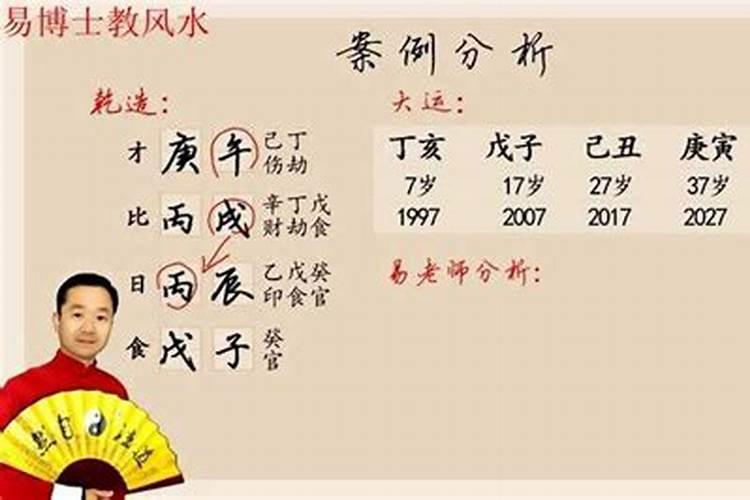 易博士教风水
案例分析
乾造：
才 庚 午 己丁
伤劫
比 丙 戌 辛丁戊
财劫食
日 丙 辰 乙戊癸
印食官
食 戊 子 癸
官
大运：
丁亥 戊子 己丑 庚寅
7岁 17岁 27岁 37岁
1997 2007 2017 2027
易老师分析：